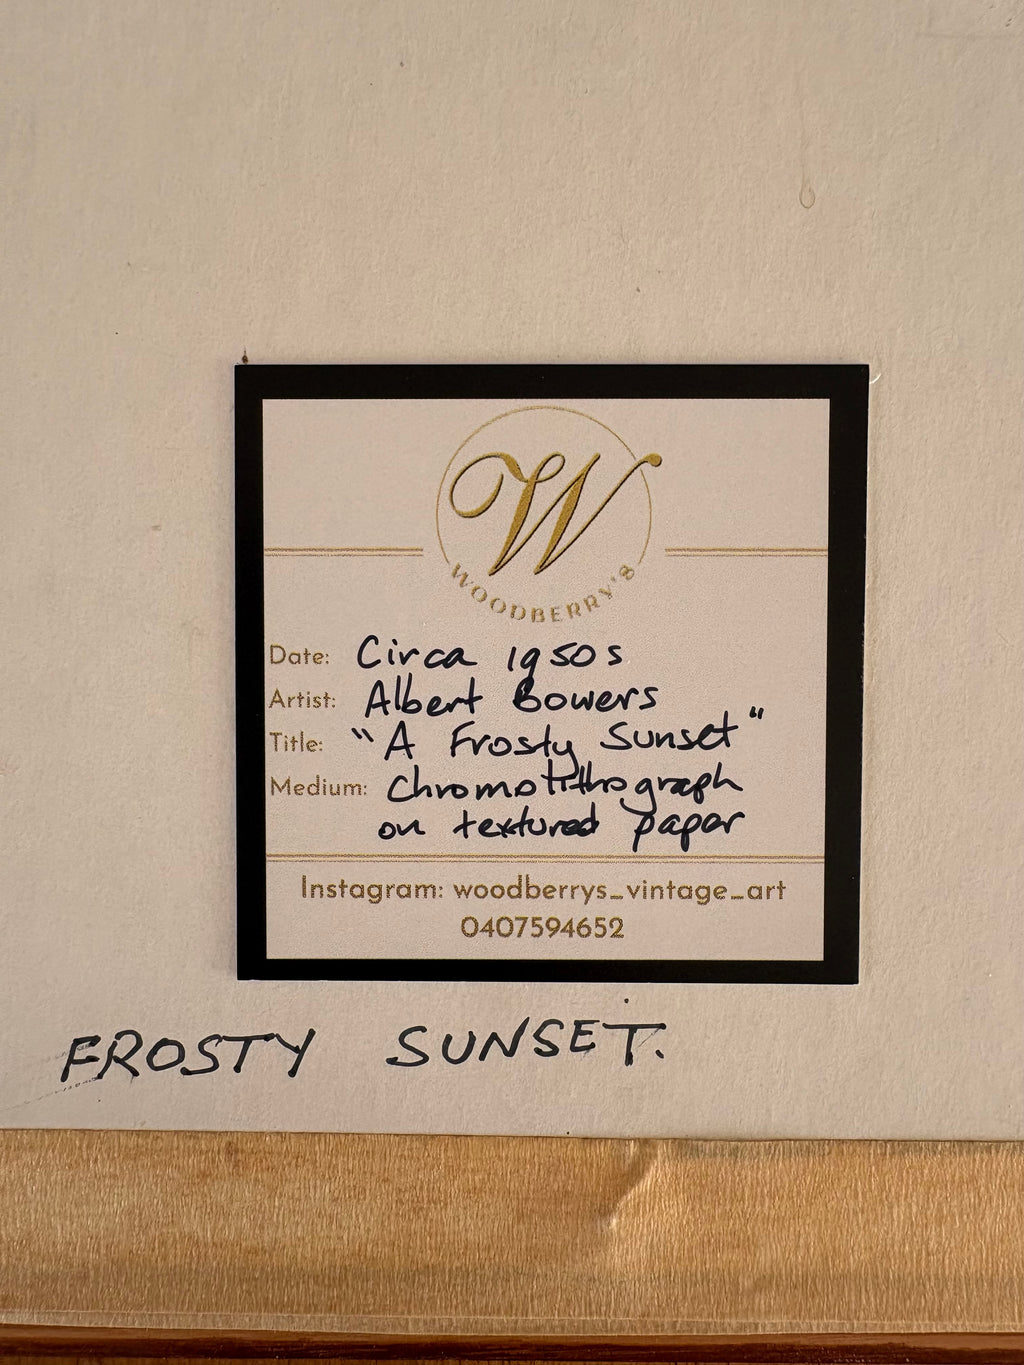 W
WOODBERRY'S
Date: Circa 1950s
Artist: Albert Bowers
Title: "A Frosty Sunset"
Medium: Chromolithograph
on textured paper
Instagram: woodberrys_vintage_art
0407594652
FROSTY SUNSET.